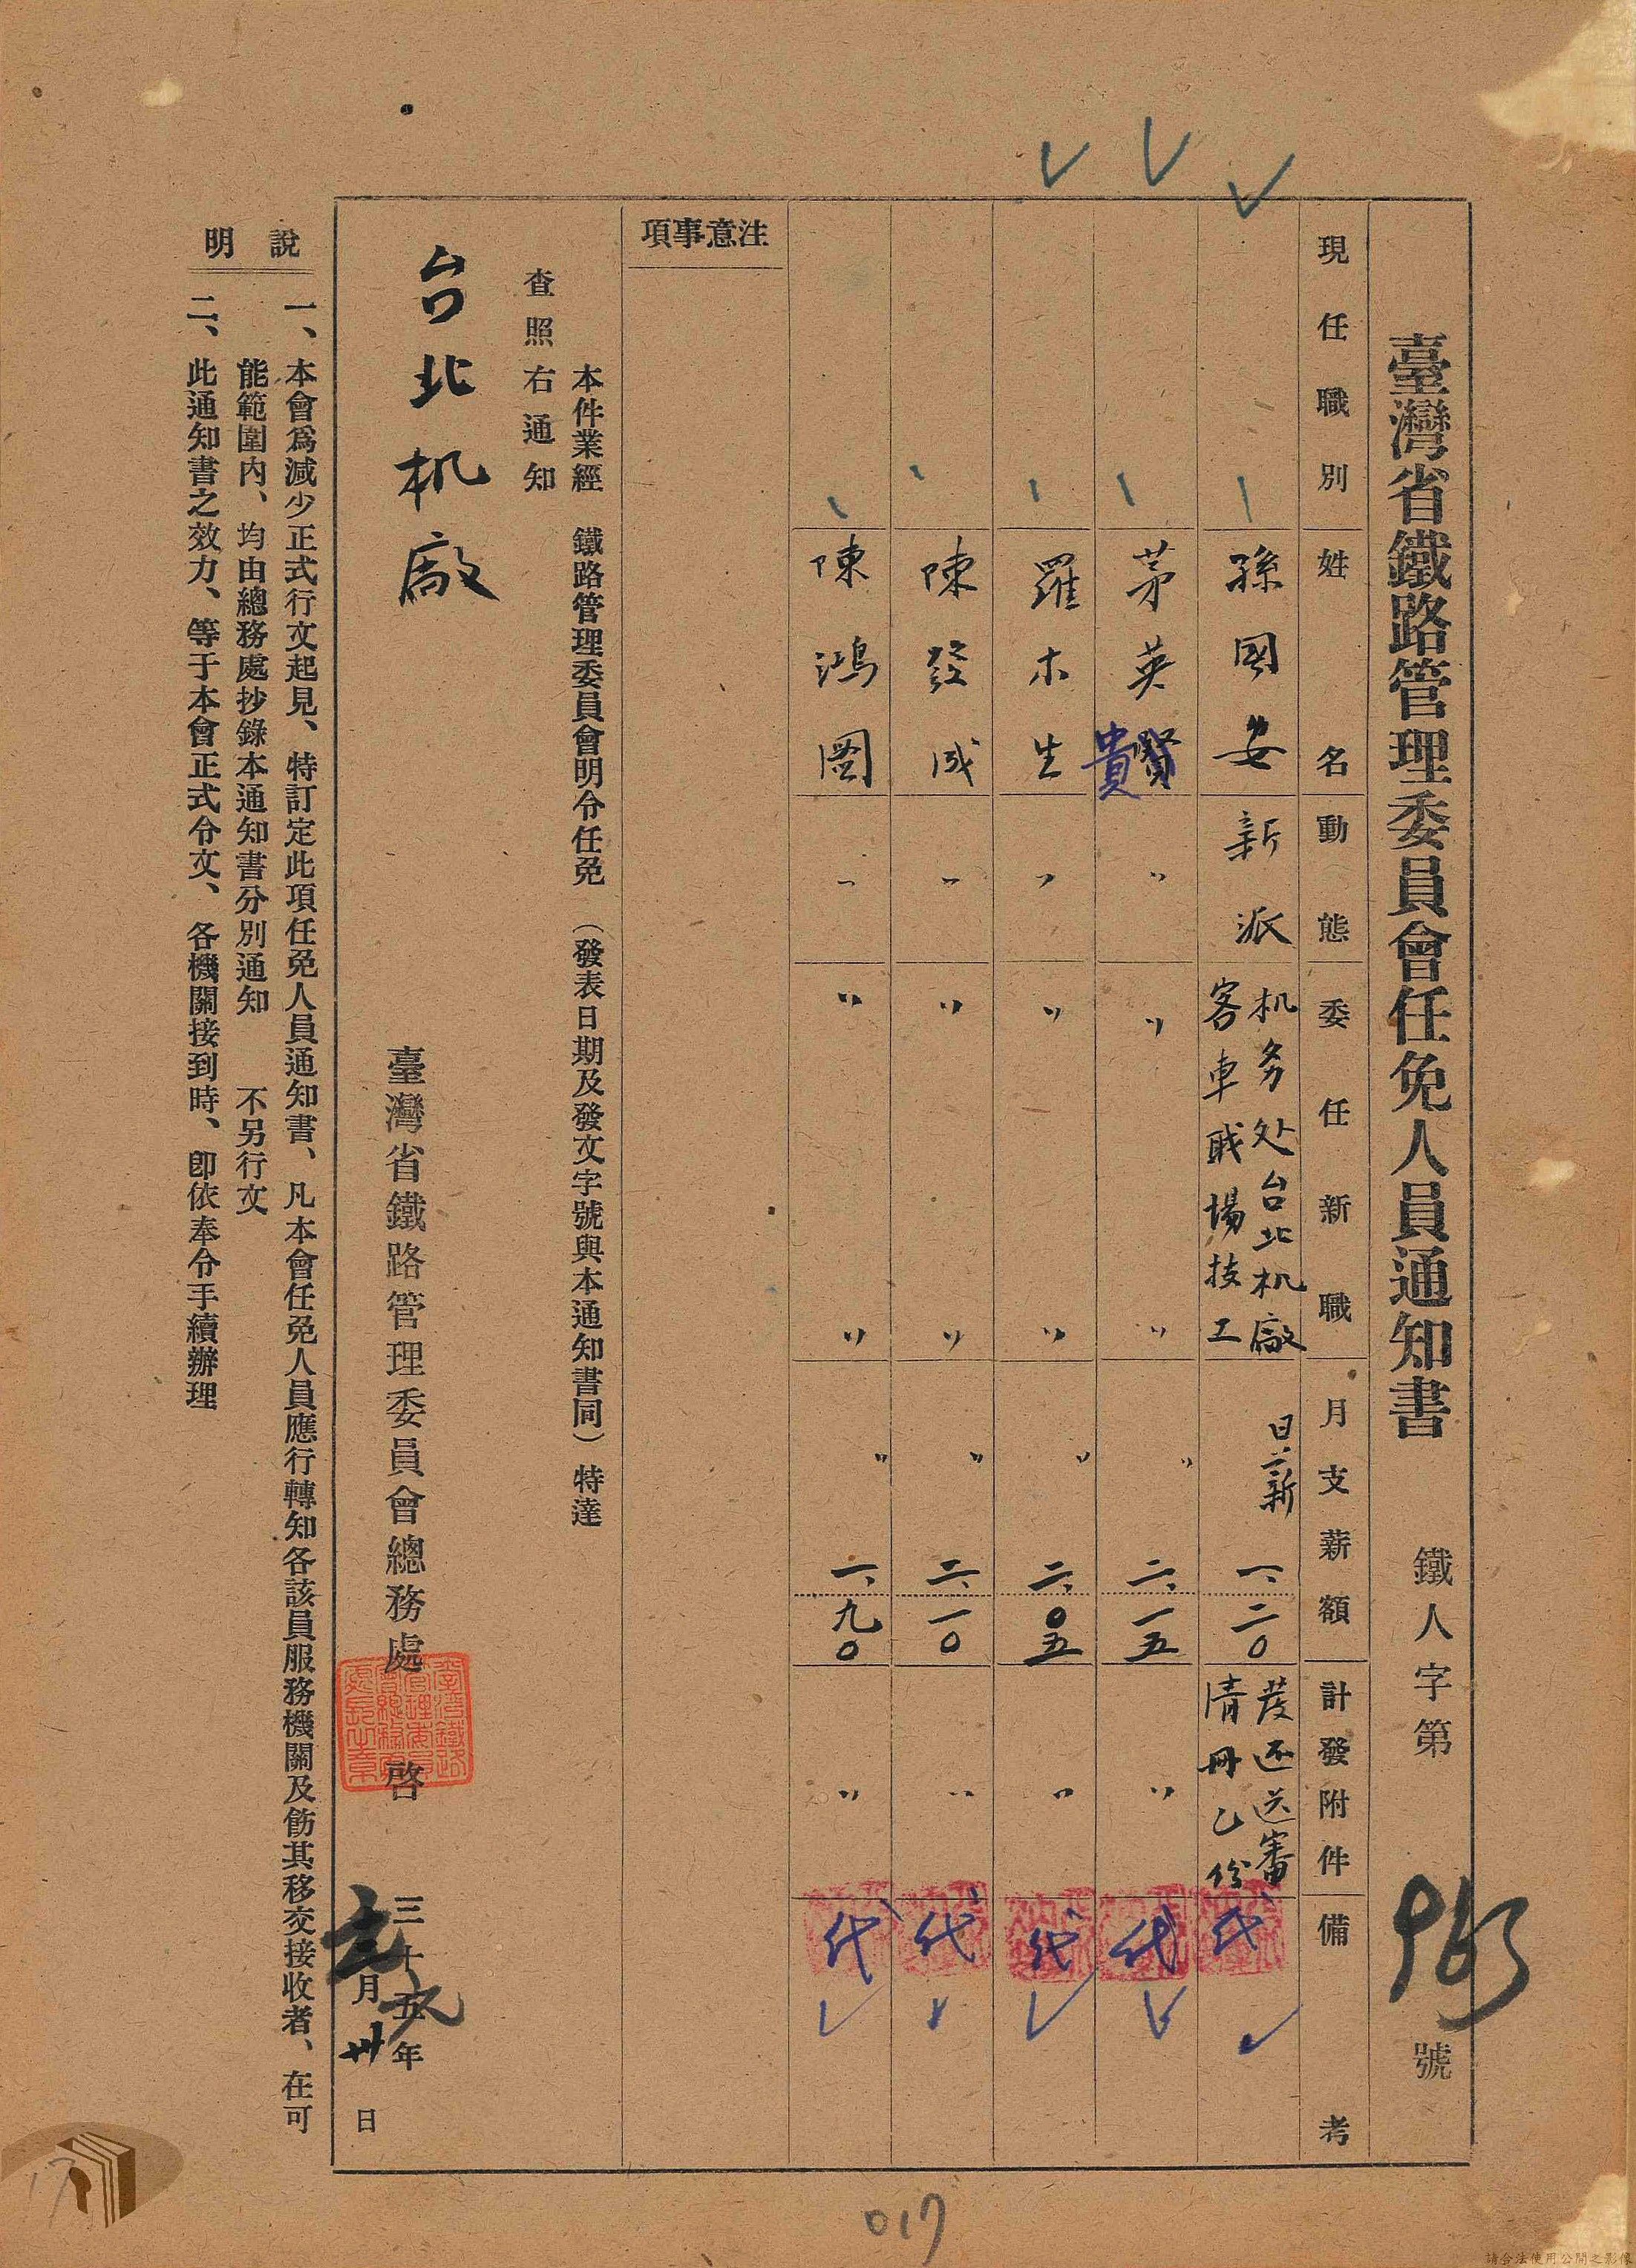 臺灣省鐵路管理委員會任免人員通知書 鐵人字第 號
現任職別 姓名 動態 委任新職 月支薪額 計發附件 備考
孫國安 新派 机务处台北机廠 日薪 一、二〇 发还送審
客車戝場技工 清冊乙份 代
茅英賢 〃 〃 〃 〃 二、一五 〃 代
貴
羅木生 〃 〃 〃 〃 二、〇五 〃 代
陳發成 〃 〃 〃 〃 二、一〇 〃 代
陳鴻圖 〃 〃 〃 〃 一、九〇 〃 代
注意事項
本件業經 鐵路管理委員會明令任免 (發表日期及發文字號與本通知書同) 特達
查照右通知
台北机廠
臺灣省鐵路管理委員會總務處 啓
三十五年
月卅日
說明
一、本會爲減少正式行文起見、特訂定此項任免人員通知書、凡本會任免人員應行轉知各該員服務機關及飭其移交接收者、在可
能範圍內、均由總務處抄錄本通知書分別通知 不另行文
二、此通知書之效力、等于本會正式令文、各機關接到時、卽依奉令手續辦理
017
17
請合法使用公開之影像